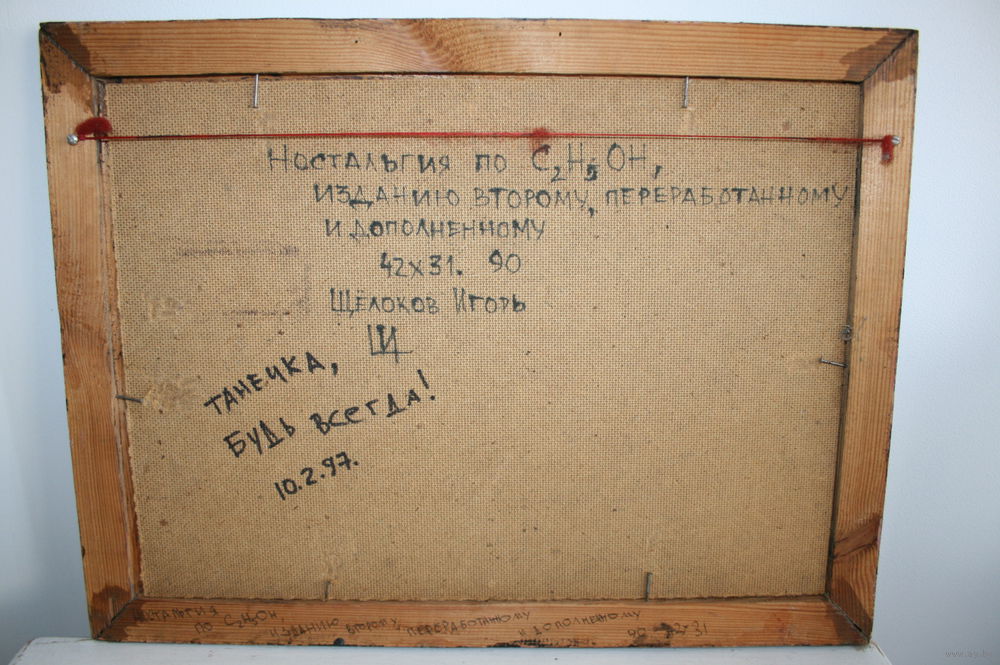 Ностальгия по C₂H₅OH,
изданию второму, переработанному
и дополненному
42х31. 90
Щёлоков Игорь
ЩИ
Танечка,
будь всегда!
10.2.97.
Ностальгия
по C₂H₅OH
изданию второму, переработанному дополненному
90 42х31
www.ay.by